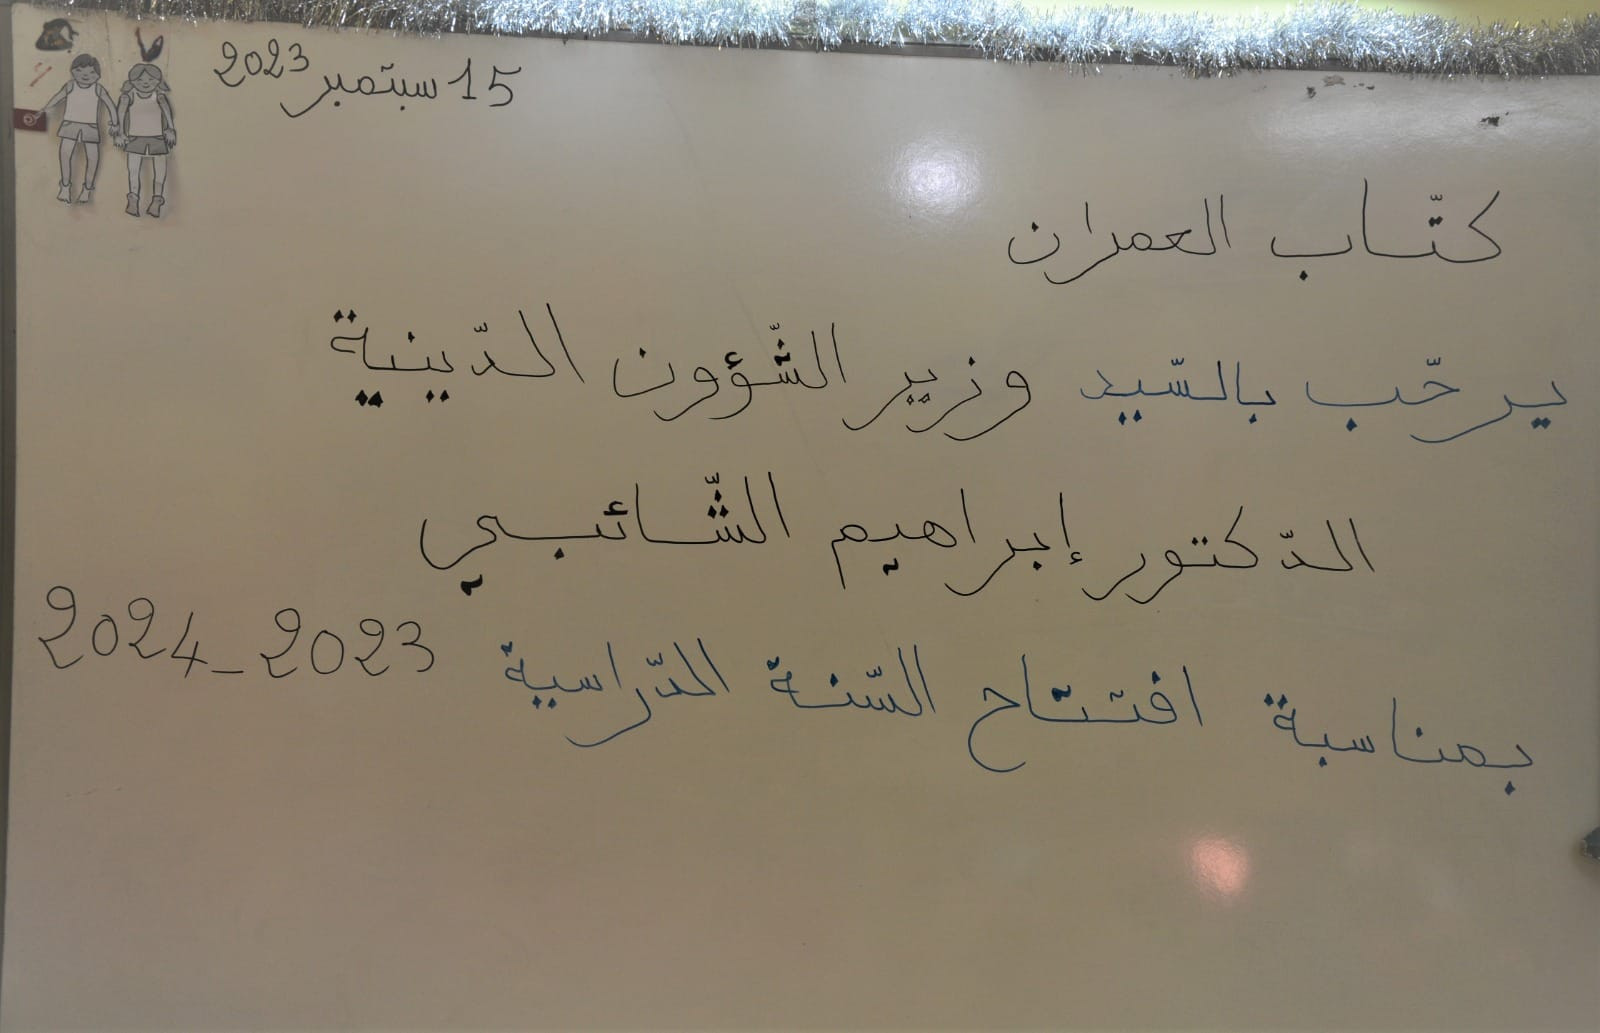 15 سبتمبر 2023
كتّاب العمران
يرحّب بالسّيد وزير الشّؤون الدّينية
الدّكتور إبراهيم الشّائبي
بمناسبة افتتاح السّنة الدّراسية 2023_2024